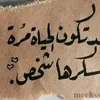 قد تكون الحياة مُرة
سكرها شخص.
meeks